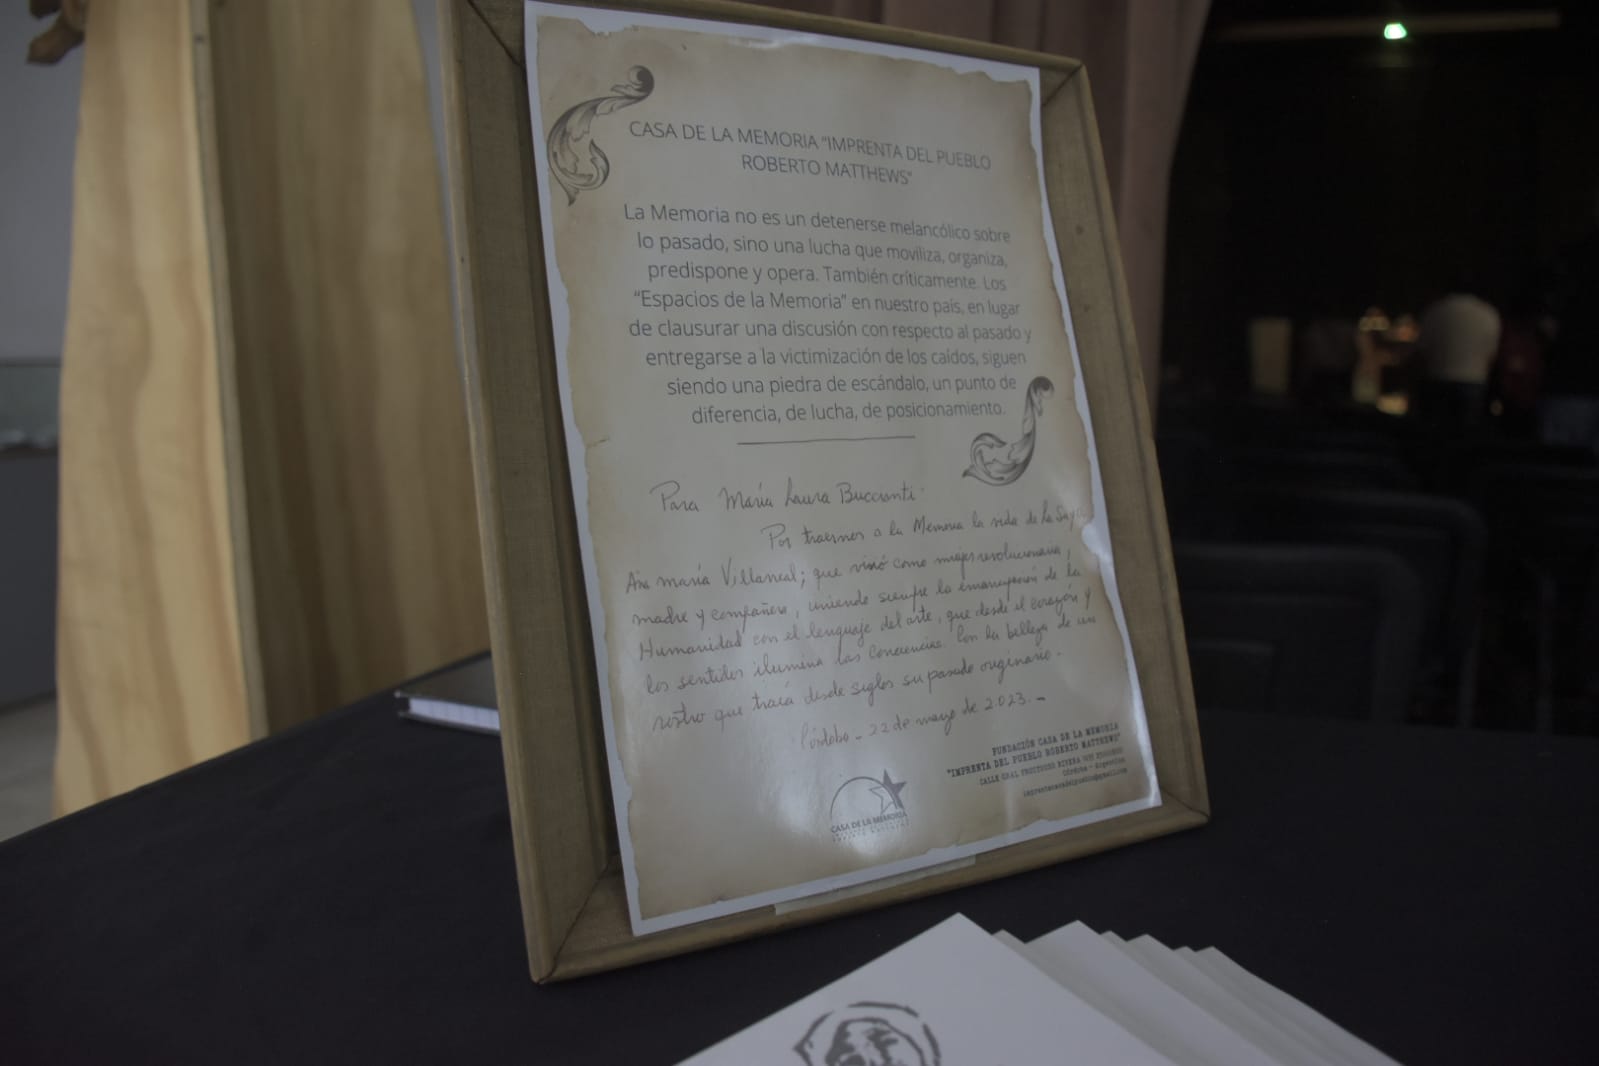 CASA DE LA MEMORIA "IMPRENTA DEL PUEBLO
ROBERTO MATTHEWS"
La Memoria no es un detenerse melancólico sobre
lo pasado, sino una lucha que moviliza, organiza,
predispone y opera. También críticamente. Los
"Espacios de la Memoria" en nuestro país, en lugar
de clausurar una discusión con respecto al pasado y
entregarse a la victimización de los caídos, siguen
siendo una piedra de escándalo, un punto de
diferencia, de lucha, de posicionamiento.
Para María Laura Buccianti.
Por traernos a la Memoria la vida de La Saya
Ana maría Villarreal; que vivió como mujer revolucionaria,
madre y compañera, uniendo siempre la emancipación de la
Humanidad con el lenguaje del arte, que desde el corazón y
los sentidos ilumina las conciencias. Con la belleza de un
rostro que traía desde siglos su pasado originario.
Córdoba - 22 de mayo de 2.023.-
FUNDACIÓN CASA DE LA MEMORIA
"IMPRENTA DEL PUEBLO ROBERTO MATTHEWS"
CALLE GRAL FRUCTUOSO RIVERA
Córdoba - Argentina
CASA DE LA MEMORIA